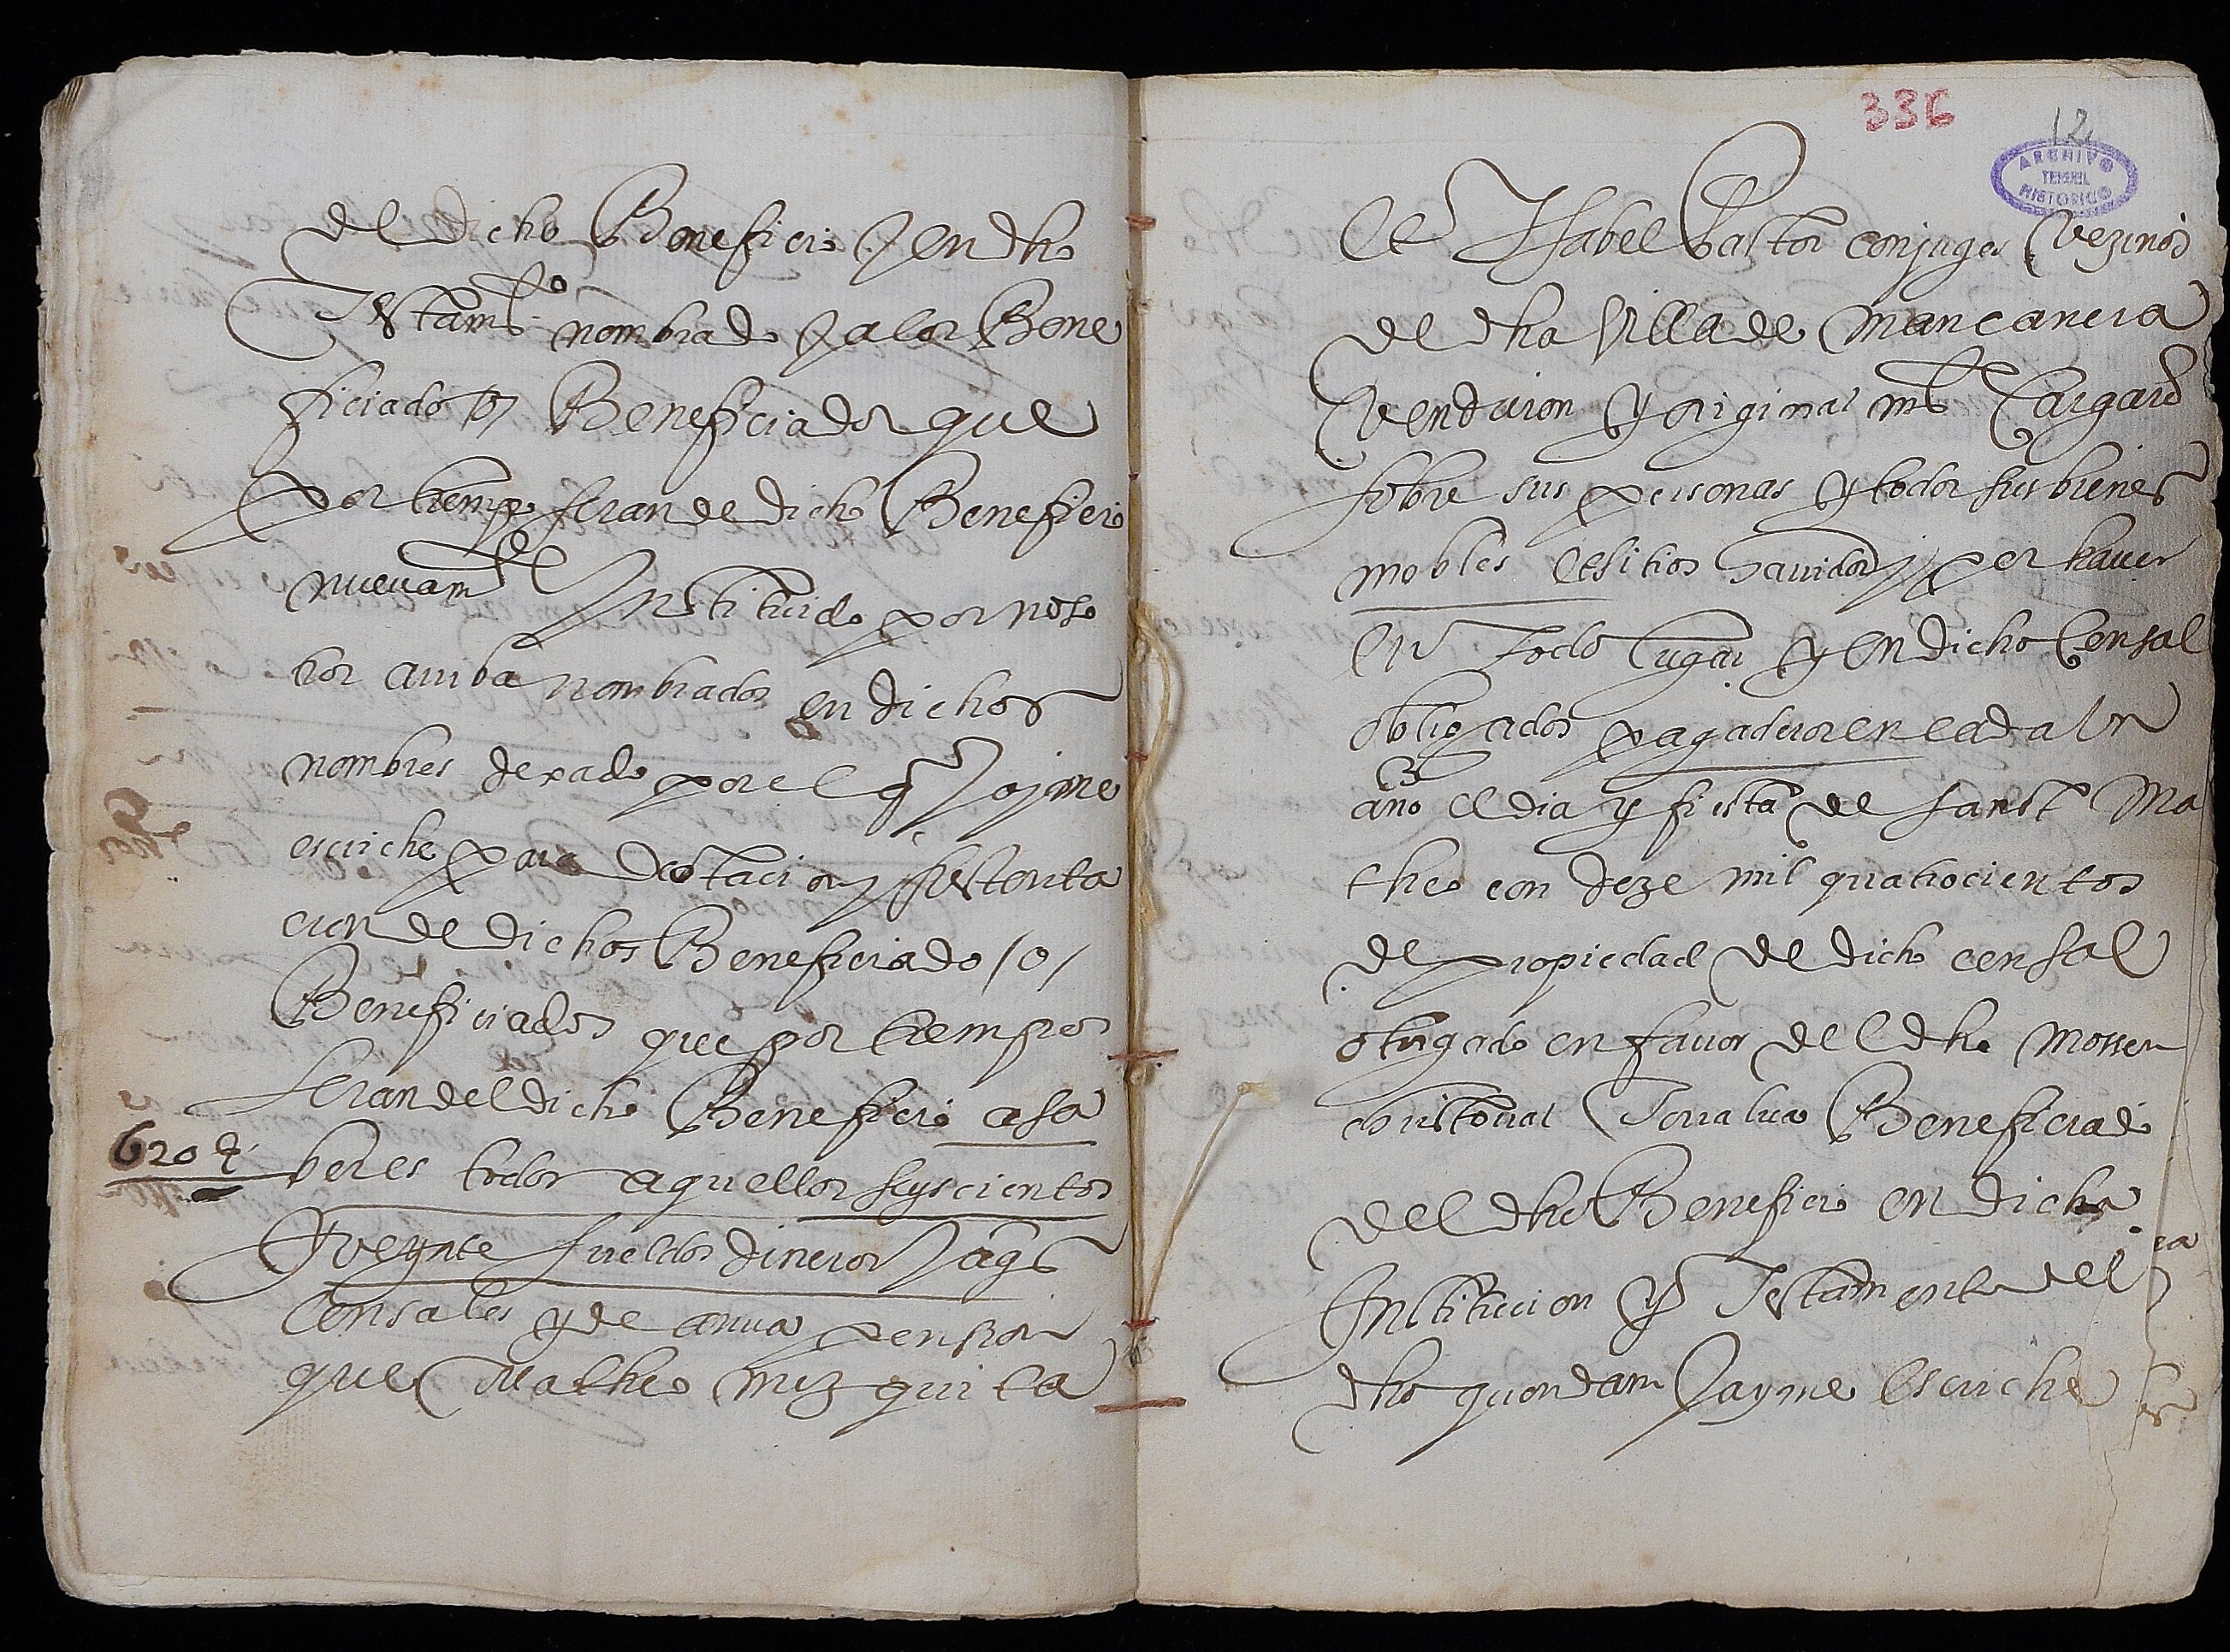 del dicho Beneficio y en dho
Testamto nombrado y a los Bene
ficiado /o/ Beneficiados que
por tiempo seran de dicho Beneficio
nueuamte Instituido por noso
tros arriba nombrados en dichos
nombres dexado por el qo Jayme
escriche para dotacion y sustenta
cion de dichos Beneficiado /o/
Beneficiados que por tiempos
seran del dicho Beneficio a sa
620 s
ber es todos aquellos seyscientos
y veynte sueldos dineros Jags
Censales y de annua pension
que Matheo mezquita
336
12
ARCHIVO
TERUEL
HISTORICO
et Ysabel Pastor conjuges vezinos
de dha Villa de mancanera
vendieron y original mte Cargaro
sobre sus personas y todos sus bienes
mobles et sitios hauidos y por hauer
en todo lugar y en dicho Censal
obligados pagaderos en cada Un
año el dia y fiesta de sanct Ma
theo con doze mil quatrocientos
de propiedad de dicho censal
otorgado en fauor del dho mossen
christoual Torralua Beneficiado
del dho Beneficio en dicha
Institucion y Testamento del
dho quondam Jayme escriche